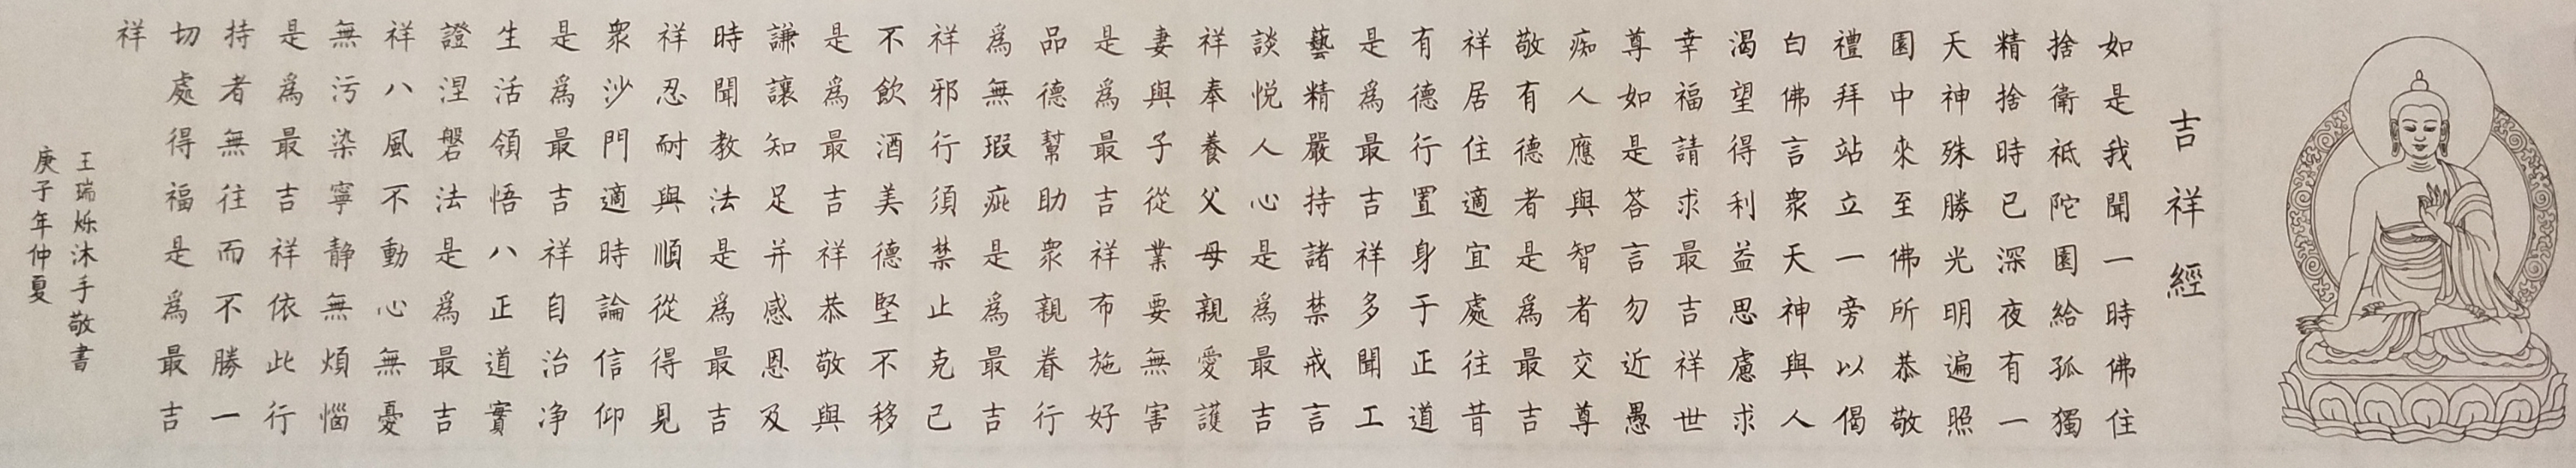 吉祥經
如是我聞一時佛住
捨衛祗陀園給孤獨
精捨時已深夜有一
天神殊勝光明遍照
園中來至佛所恭敬
禮拜站立一旁以偈
白佛言衆天神與人
渴望得利益思慮求
幸福請求最吉祥世
尊如是答言勿近愚
痴人應與智者交尊
敬有德者是爲最吉
祥居住適宜處往昔
有德行置身于正道
是爲最吉祥多聞工
藝精嚴持諸禁戒言
談悦人心是爲最吉
祥奉養父母親愛護
妻與子從業要無害
是爲最吉祥布施好
品德幫助衆親眷行
爲無瑕疵是爲最吉
祥邪行須禁止克己
不飲酒美德堅不移
是爲最吉祥恭敬與
謙讓知足并感恩及
時聞教法是爲最吉
祥忍耐與順從得見
衆沙門適時論信仰
是爲最吉祥自治净
生活領悟八正道實
證涅磐法是爲最吉
祥八風不動心無憂
無污染寧静無煩惱
是爲最吉祥依此行
持者無往而不勝一
切處得福是爲最吉
祥
王瑞烁沐手敬書
庚子年仲夏